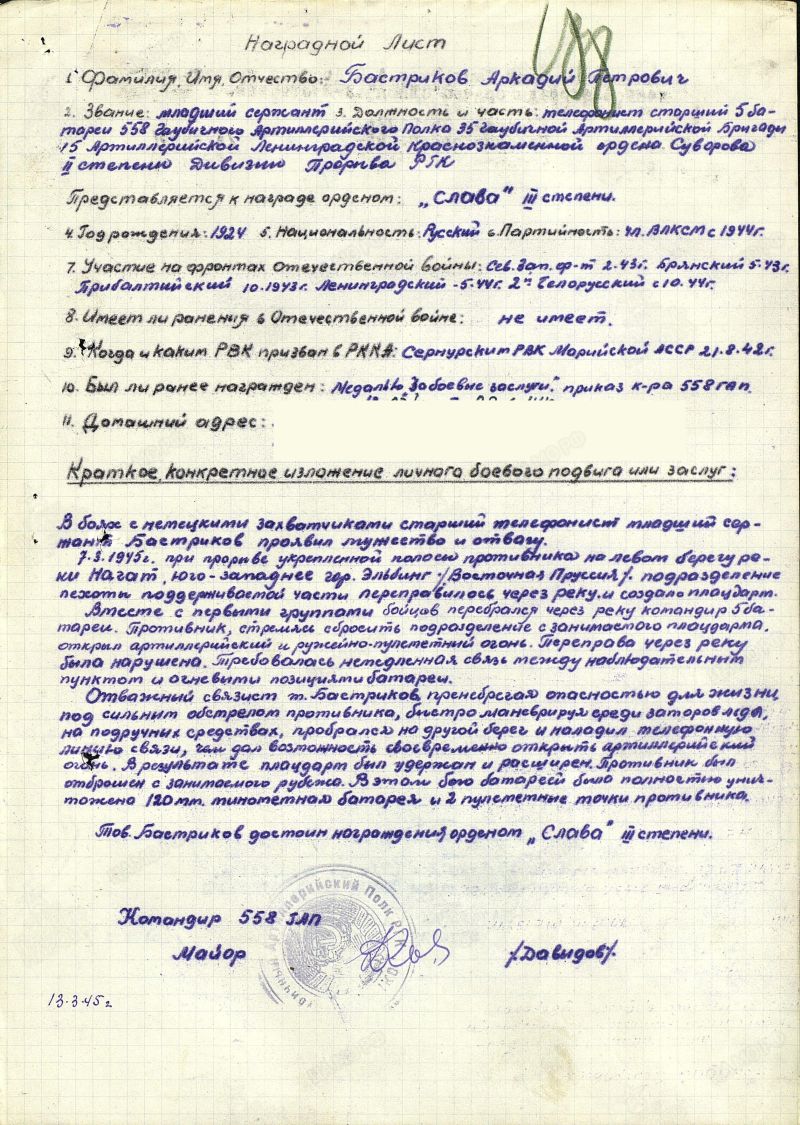 Наградной Лист
188
1. Фамилия, Имя, Отчество: Бастриков Аркадий Петрович
2. Звание: младший сержант 3. Должность и часть: телефонист старший 5 ба-
тареи 558 Гаубичного Артиллерийского Полка 35 Гаубичной Артиллерийской Бригады
15 Артиллерийской Ленинградской Краснознаменной ордена Суворова
II степени Дивизии Прорыва РГК
Представляется к награде орденом: „Слава" III степени.
4. Год рождения: 1924 5. Национальность: Русский 6. Партийность: чл. ВЛКСМ с 1944г.
7. Участие на фронтах Отечественной войны: Сев. Зап. ф-т 2-43г. Брянский 5-43г.
Прибалтийский 10.1943г. Ленинградский -5.44г. 2й Белорусский с 10.44г.
8. Имеет ли ранения в Отечественной войне: не имеет.
9. Когда и каким РВК призван в РККА: Сернурским РВК Марийской АССР 21.8.42г.
10. Был ли ранее награжден: Медалью „За боевые заслуги." приказ к-ра 558 гап.
11. Домашний адрес:
Краткое, конкретное изложение личного боевого подвига или заслуг:
В боях с немецкими захватчиками старший телефонист младший сер-
жант Бастриков проявил мужество и отвагу.
7.3.1945г. при прорыве укрепленной полосы противника на левом берегу ре-
ки Нагат, юго-западнее гор. Эльбинг /Восточная Пруссия/. подразделение
пехоты поддерживаемой части переправилось через реку и создало плацдарм.
Вместе с первыми группами бойцов перебрался через реку командир 5 ба-
тареи. Противник, стремясь сбросить подразделение с занимаемого плацдарма,
открыл артиллерийский и ружейно-пулеметный огонь. Переправа через реку
была нарушена. Требовалась немедленная связь между наблюдательным
пунктом и огневыми позициями батареи.
Отважный связист т. Бастриков пренебрегая опасностью для жизни
под сильным обстрелом противника, быстро маневрируя среди заторов льда,
на подручных средствах, пробрался на другой берег и наладил телефонную
линию связи, чем дал возможность своевременно открыть артиллерийский
огонь. В результате плацдарм был удержан и расширен. Противник был
отброшен с занимаемого рубежа. В этом бою батареей была полностью унич-
тожена 120 мм. минометная батарея и 2 пулеметные точки противника.
Тов. Бастриков достоин награждения орденом „Слава" III степени.
Командир 558 ГАП
Майор /Давидов/.
13.3.45г